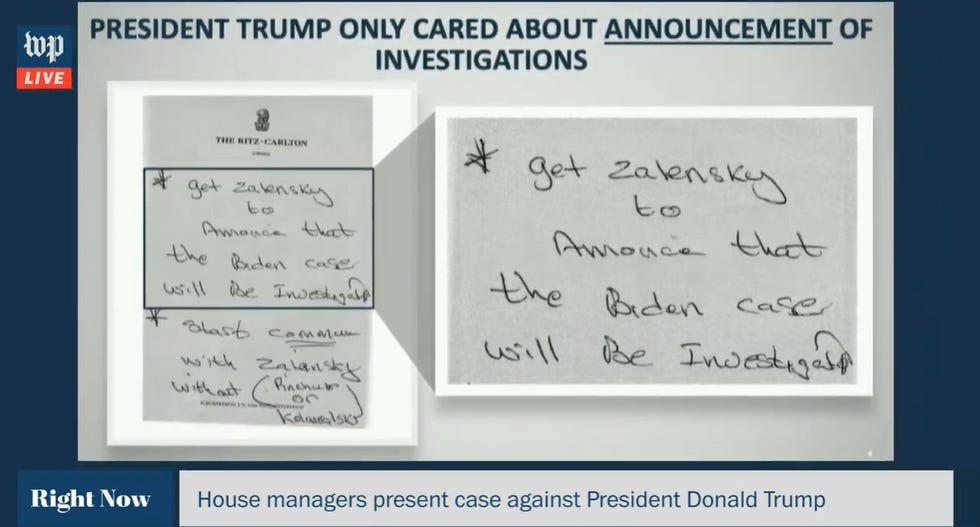 wp
LIVE
PRESIDENT TRUMP ONLY CARED ABOUT ANNOUNCEMENT OF
INVESTIGATIONS
THE RITZ-CARLTON
* get Zalensky
to
Annouce that
the Biden case
will Be Investigatd
* start commun
with Zalansky
without (Pinchuk
or
Kolamolski)
* get Zalensky
to
Annouce that
the Biden case
will Be Investigatd
4
Right Now
House managers present case against President Donald Trump